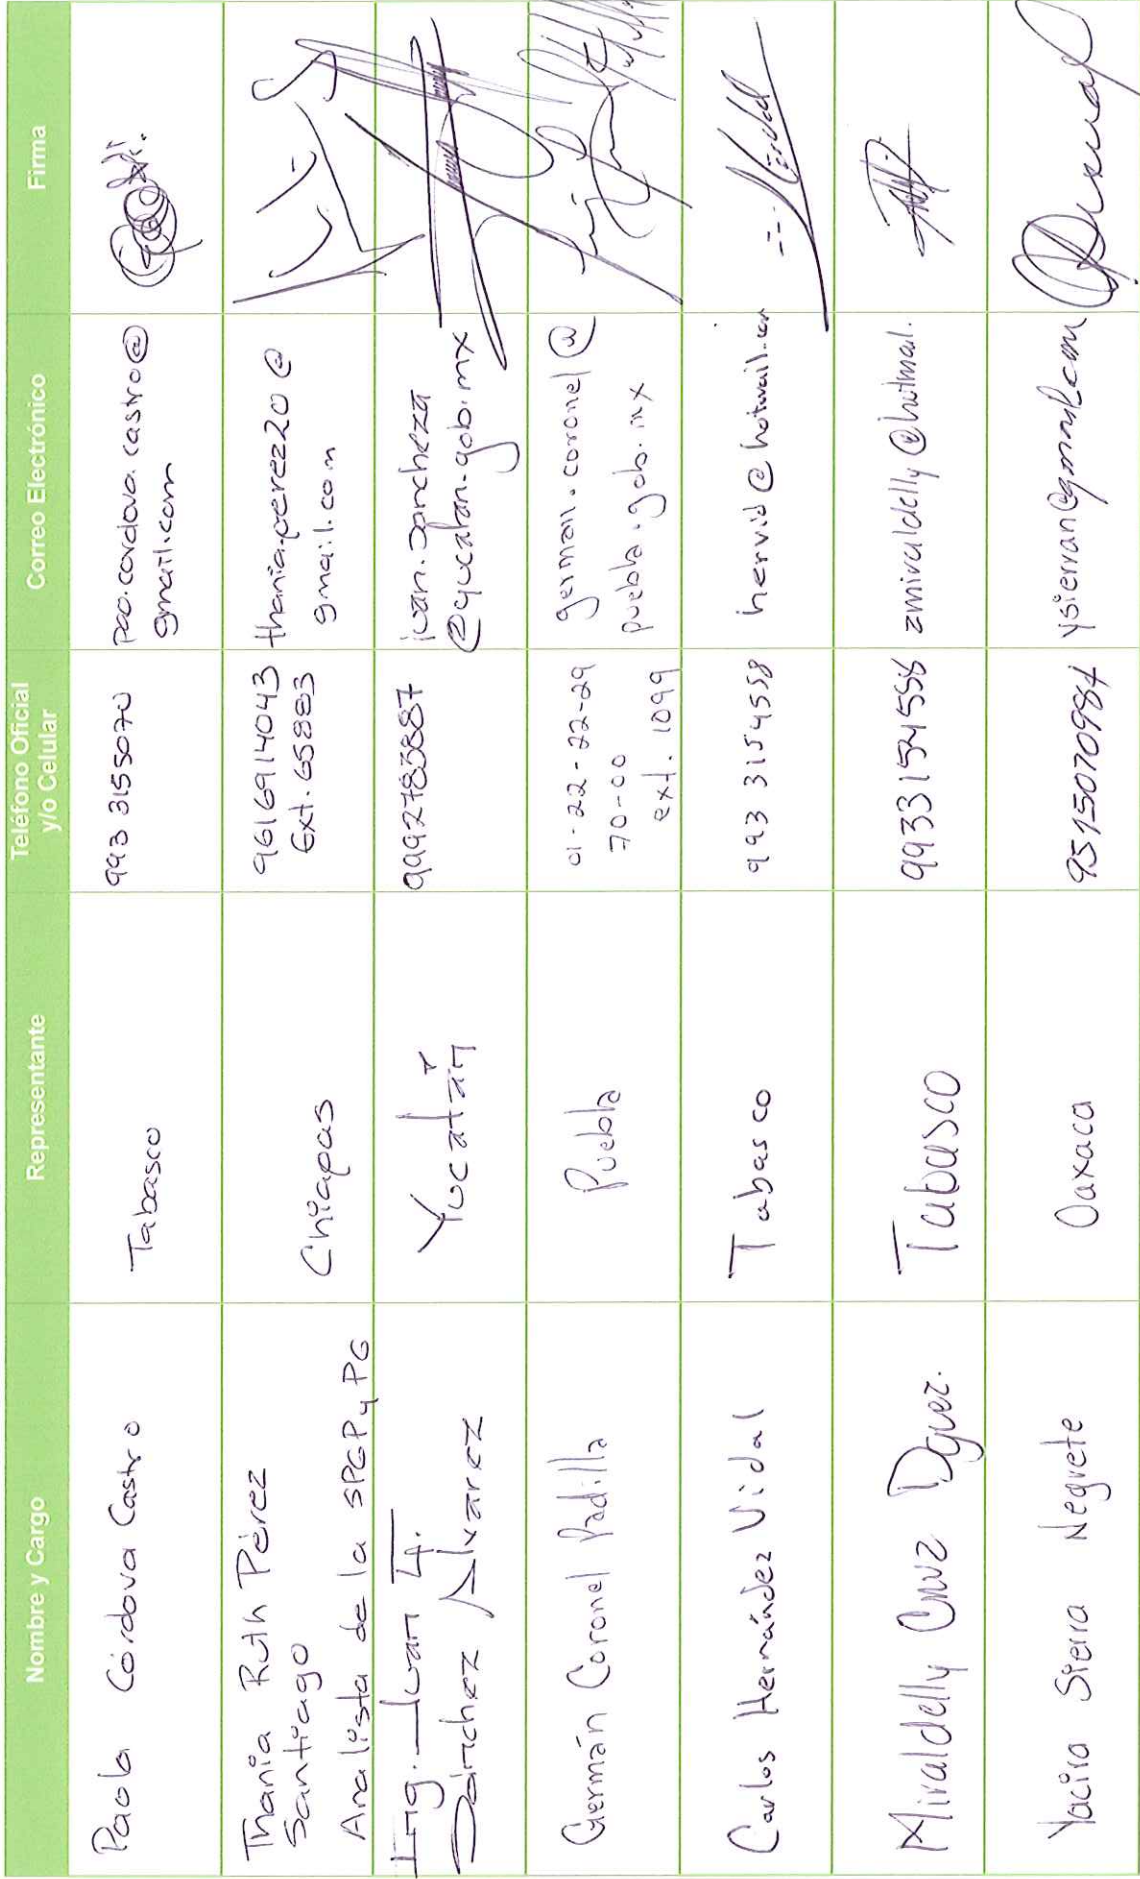 Nombre y Cargo
Representante
Teléfono Oficial
y/o Celular
Correo Electrónico
Firma
Paola Córdova Castro
Tabasco
993 3155070
pao.cordova.castro@
gmail.com
Thania Ruth Pérez
Santiago
Analista de la SPGP y PG
Chiapas
9616914043
Ext. 65883
thania.perez20@
gmail.com
Ing. Juan
Sánchez Alvarez
Yucatán
9992783887
juan.sancheza
@yucatan.gob.mx
Germán Coronel Padilla
Puebla
01-22-22-29
70-00
ext. 1099
german.coronel@
puebla.gob.mx
Carlos Hernández Vidal
Tabasco
993 3154558
hervid@hotmail.com
Miraldelly Cruz Dguez.
Tabasco
9933154558
@hotmail.
Yacira Sierra Negrete
Oaxaca
9515070984
ysierran@gmail.com